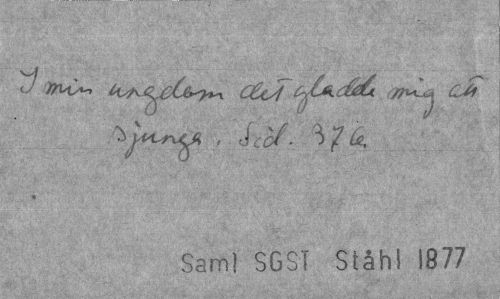 I min ungdom det gladde mig att
sjunga. Sid. 376.
Saml SGST Ståhl 1877